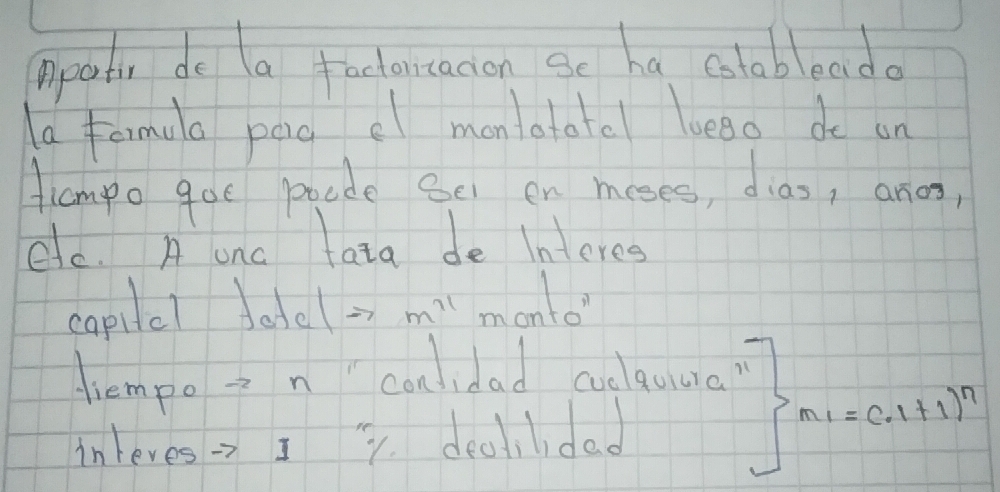 Apartir de la factorizacion se ha establecido
la formula para el montototal luego de un
tiempo que puede ser en meses, dias, años,
etc. A una taza de Interes
capital total → m " monto"
tiempo → n " cantidad cualquiera"
interes → I "% deutilidad
m1 = c.1+1)ⁿ